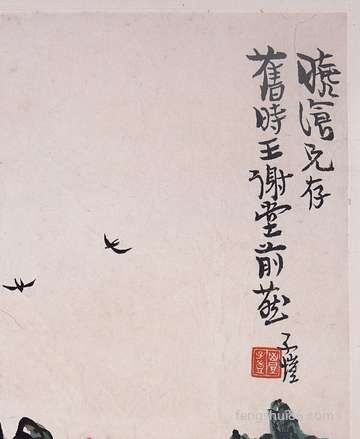 曉滄兄存
舊時王謝堂前燕
子愷
fengshui86.com